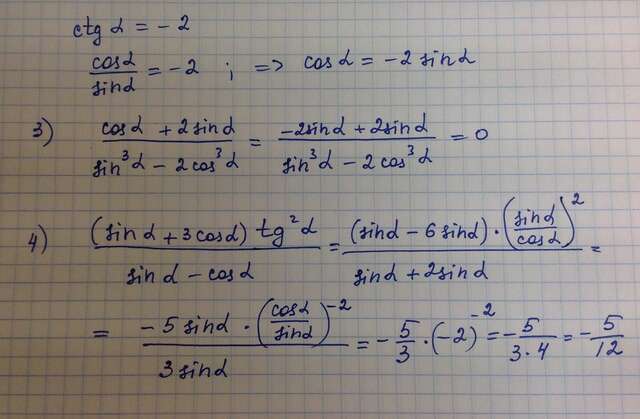 ctg α = -2
cosα/sinα = -2 ; => cosα = -2 sinα
3) (cosα + 2sinα)/(sin³α - 2cos³α) = (-2sinα + 2sinα)/(sin³α - 2cos³α) = 0
4) ((sinα + 3cosα) tg²α)/(sinα - cosα) = ((sinα - 6sinα)·(sinα/cosα)²)/(sinα + 2sinα) =
= (-5sinα·(cosα/sinα)⁻²)/(3sinα) = -5/3·(-2)⁻² = -5/(3·4) = -5/12